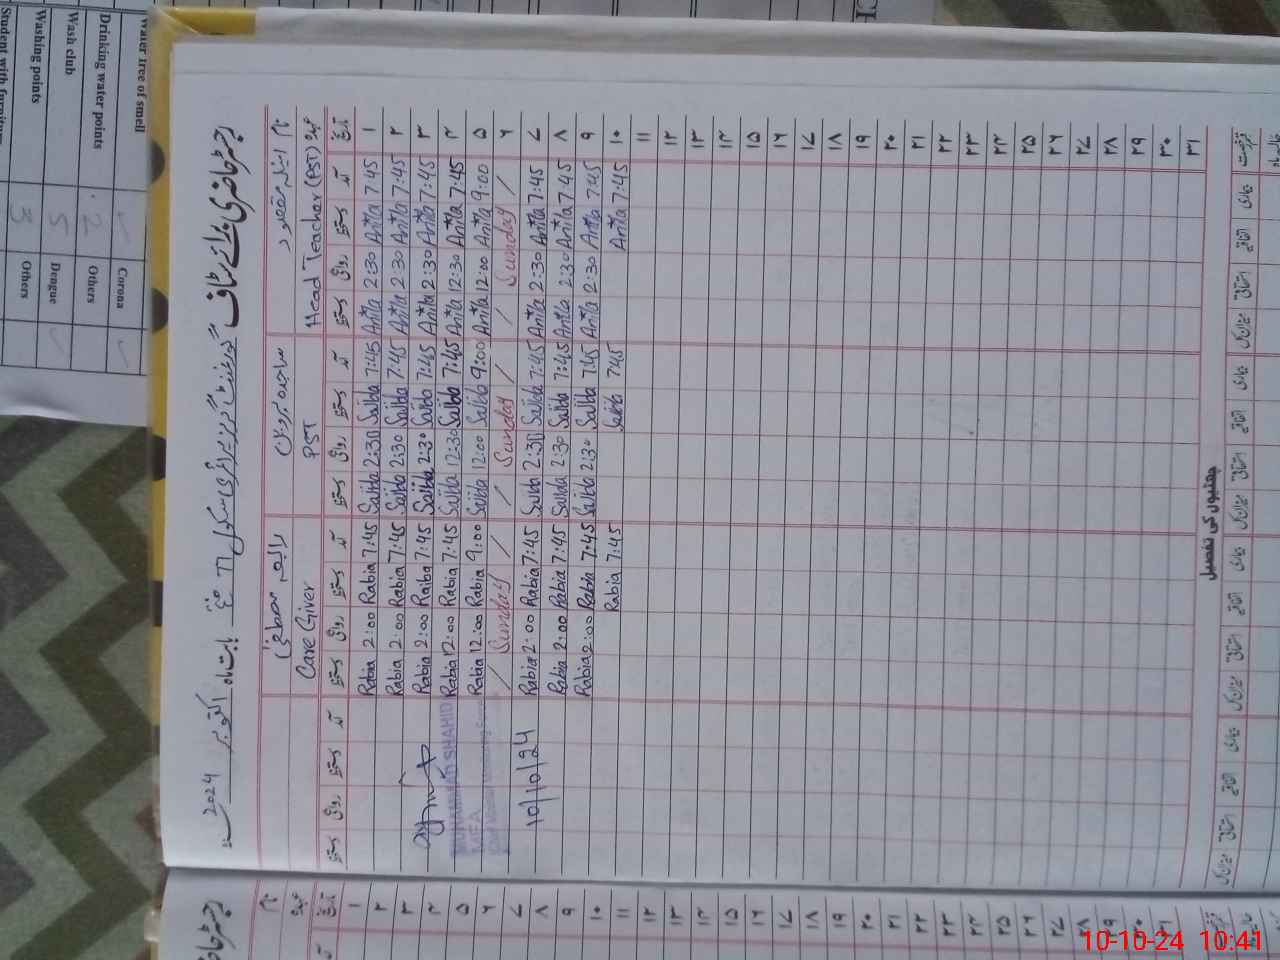 رجسٹر حاضری برائے سٹاف گورنمنٹ گرلز پرائمری سکول بابت ماہ اکتوبر سنہ 2024
نام
عہدہ Head Teacher (PST) PST Care Giver
تاریخ آمد دستخط روانگی دستخط آمد دستخط روانگی دستخط آمد دستخط روانگی دستخط آمد دستخط روانگی دستخط
۱ 7:45 Anila 2:30 Anila 7:45 Sajida 2:30 Sajida 7:45 Rabia 2:00 Rabia
۲ 7:45 Anila 2:30 Anila 7:45 Sajida 2:30 Sajida 7:45 Rabia 2:00 Rabia
۳ 7:45 Anila 2:30 Anila 7:45 Sajida 2:30 Sajida 7:45 Raiba 2:00 Rabia
۴ 7:45 Anila 12:30 Anila 7:45 Sajida 12:30 Sajida 7:45 Rabia 12:00 Rabia
۵ 9:00 Anila 12:00 Anila 9:00 Sajida 12:00 Sajida 9:00 Rabia 12:00 Rabia
۶ / Sunday / / Sunday / / Sunday /
۷ 7:45 Anila 2:30 Anila 7:45 Sajida 2:30 Sajida 7:45 Rabia 2:00 Rabia
۸ 7:45 Anila 2:30 Anila 7:45 Sajida 2:30 Sajida 7:45 Rabia 2:00 Rabia
۹ 7:45 Anila 2:30 Anila 7:45 Sajida 2:30 Sajida 7:45 Rabia 2:00 Rabia
۱۰ 7:45 Anila 7:45 Sajida 7:45 Rabia
۱۱
۱۲
۱۳
۱۴
۱۵
۱۶
۱۷
۱۸
۱۹
۲۰
۲۱
۲۲
۲۳
۲۴
۲۵
۲۶
۲۷
۲۸
۲۹
۳۰
۳۱
MUHAMMAD SHAHID
MEA
10/10/24
چھٹیوں کی تفصیل
Water free of smell Corona
Drinking water points 2 Others
Wash club 5 Dengue
Washing points 3 Others
Student with furniture
نام
عہدہ
تاریخ
۱
۲
۳
۴
۵
۶
۷
۸
۹
۱۰
۱۱
۱۲
۱۳
۱۴
۱۵
۱۶
۱۷
۱۸
۱۹
۲۰
۲۱
۲۲
۲۳
۲۴
۲۵
۲۶
۲۷
۲۸
۲۹
۳۰
۳۱
10-10-24 10:41